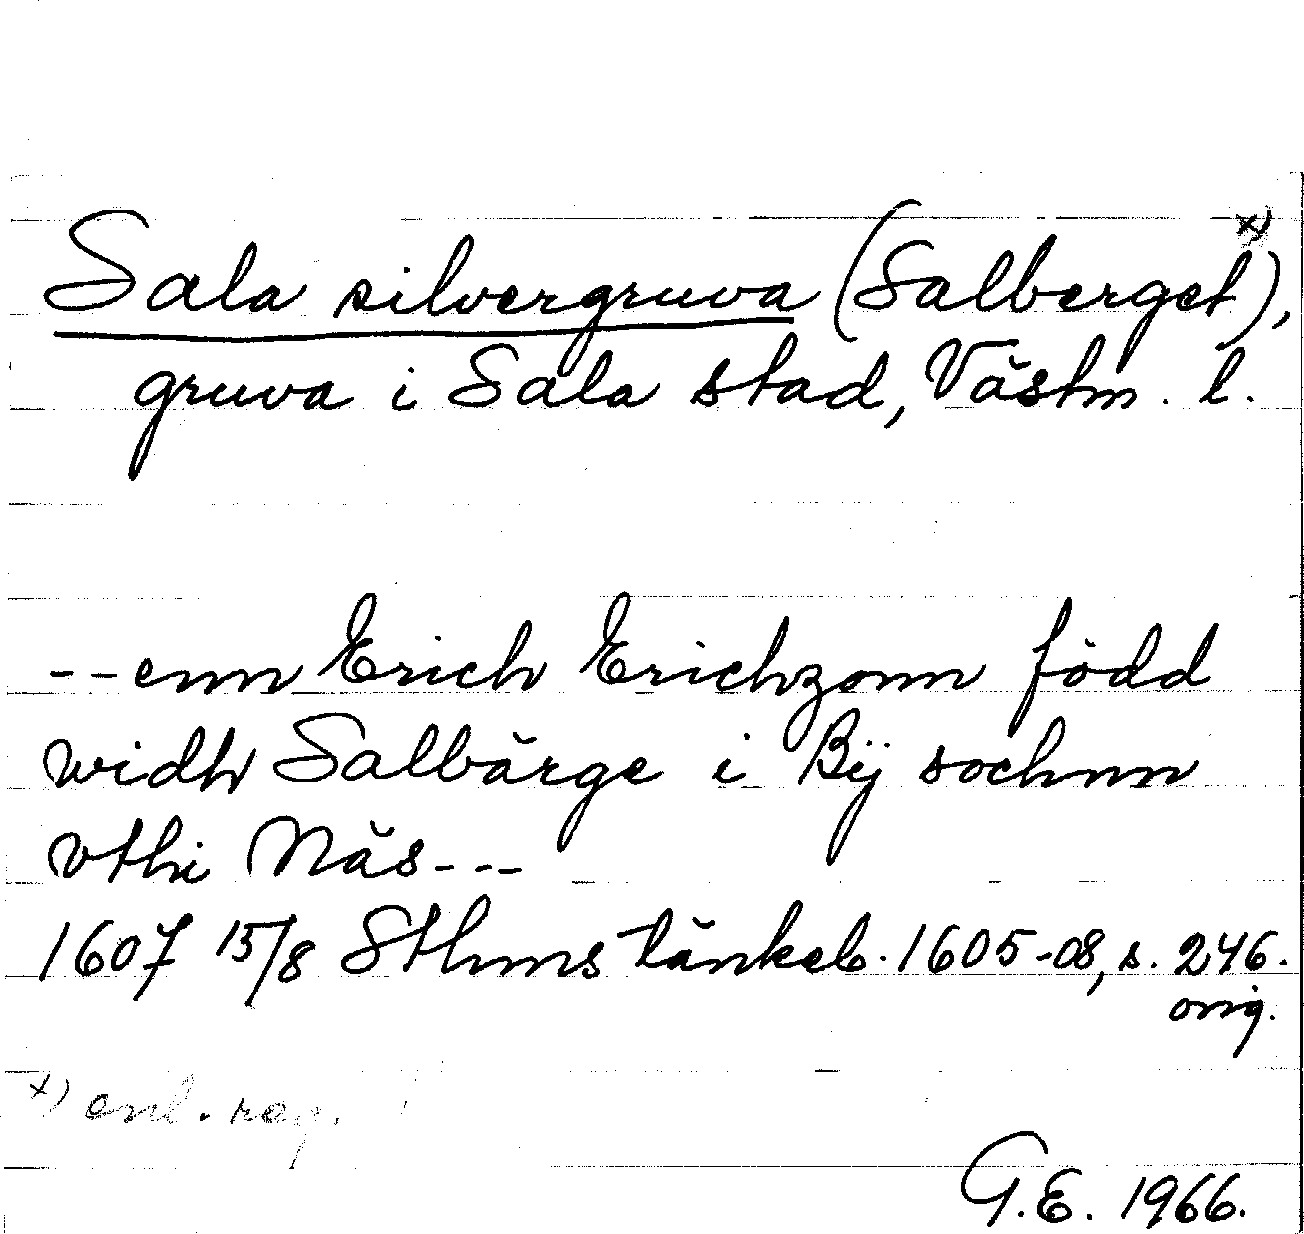 Sala silvergruva (Salberget)ˣ⁾,
gruva i Sala stad, Västm. l.
--enn Erich Erichzonn född
widh Salbärge i Bÿ sochnn
vthi Näs---
1607 15/8 Sthms tänkeb. 1605-08, s. 246.
orig.
x) enl. reg.
G.E. 1966.